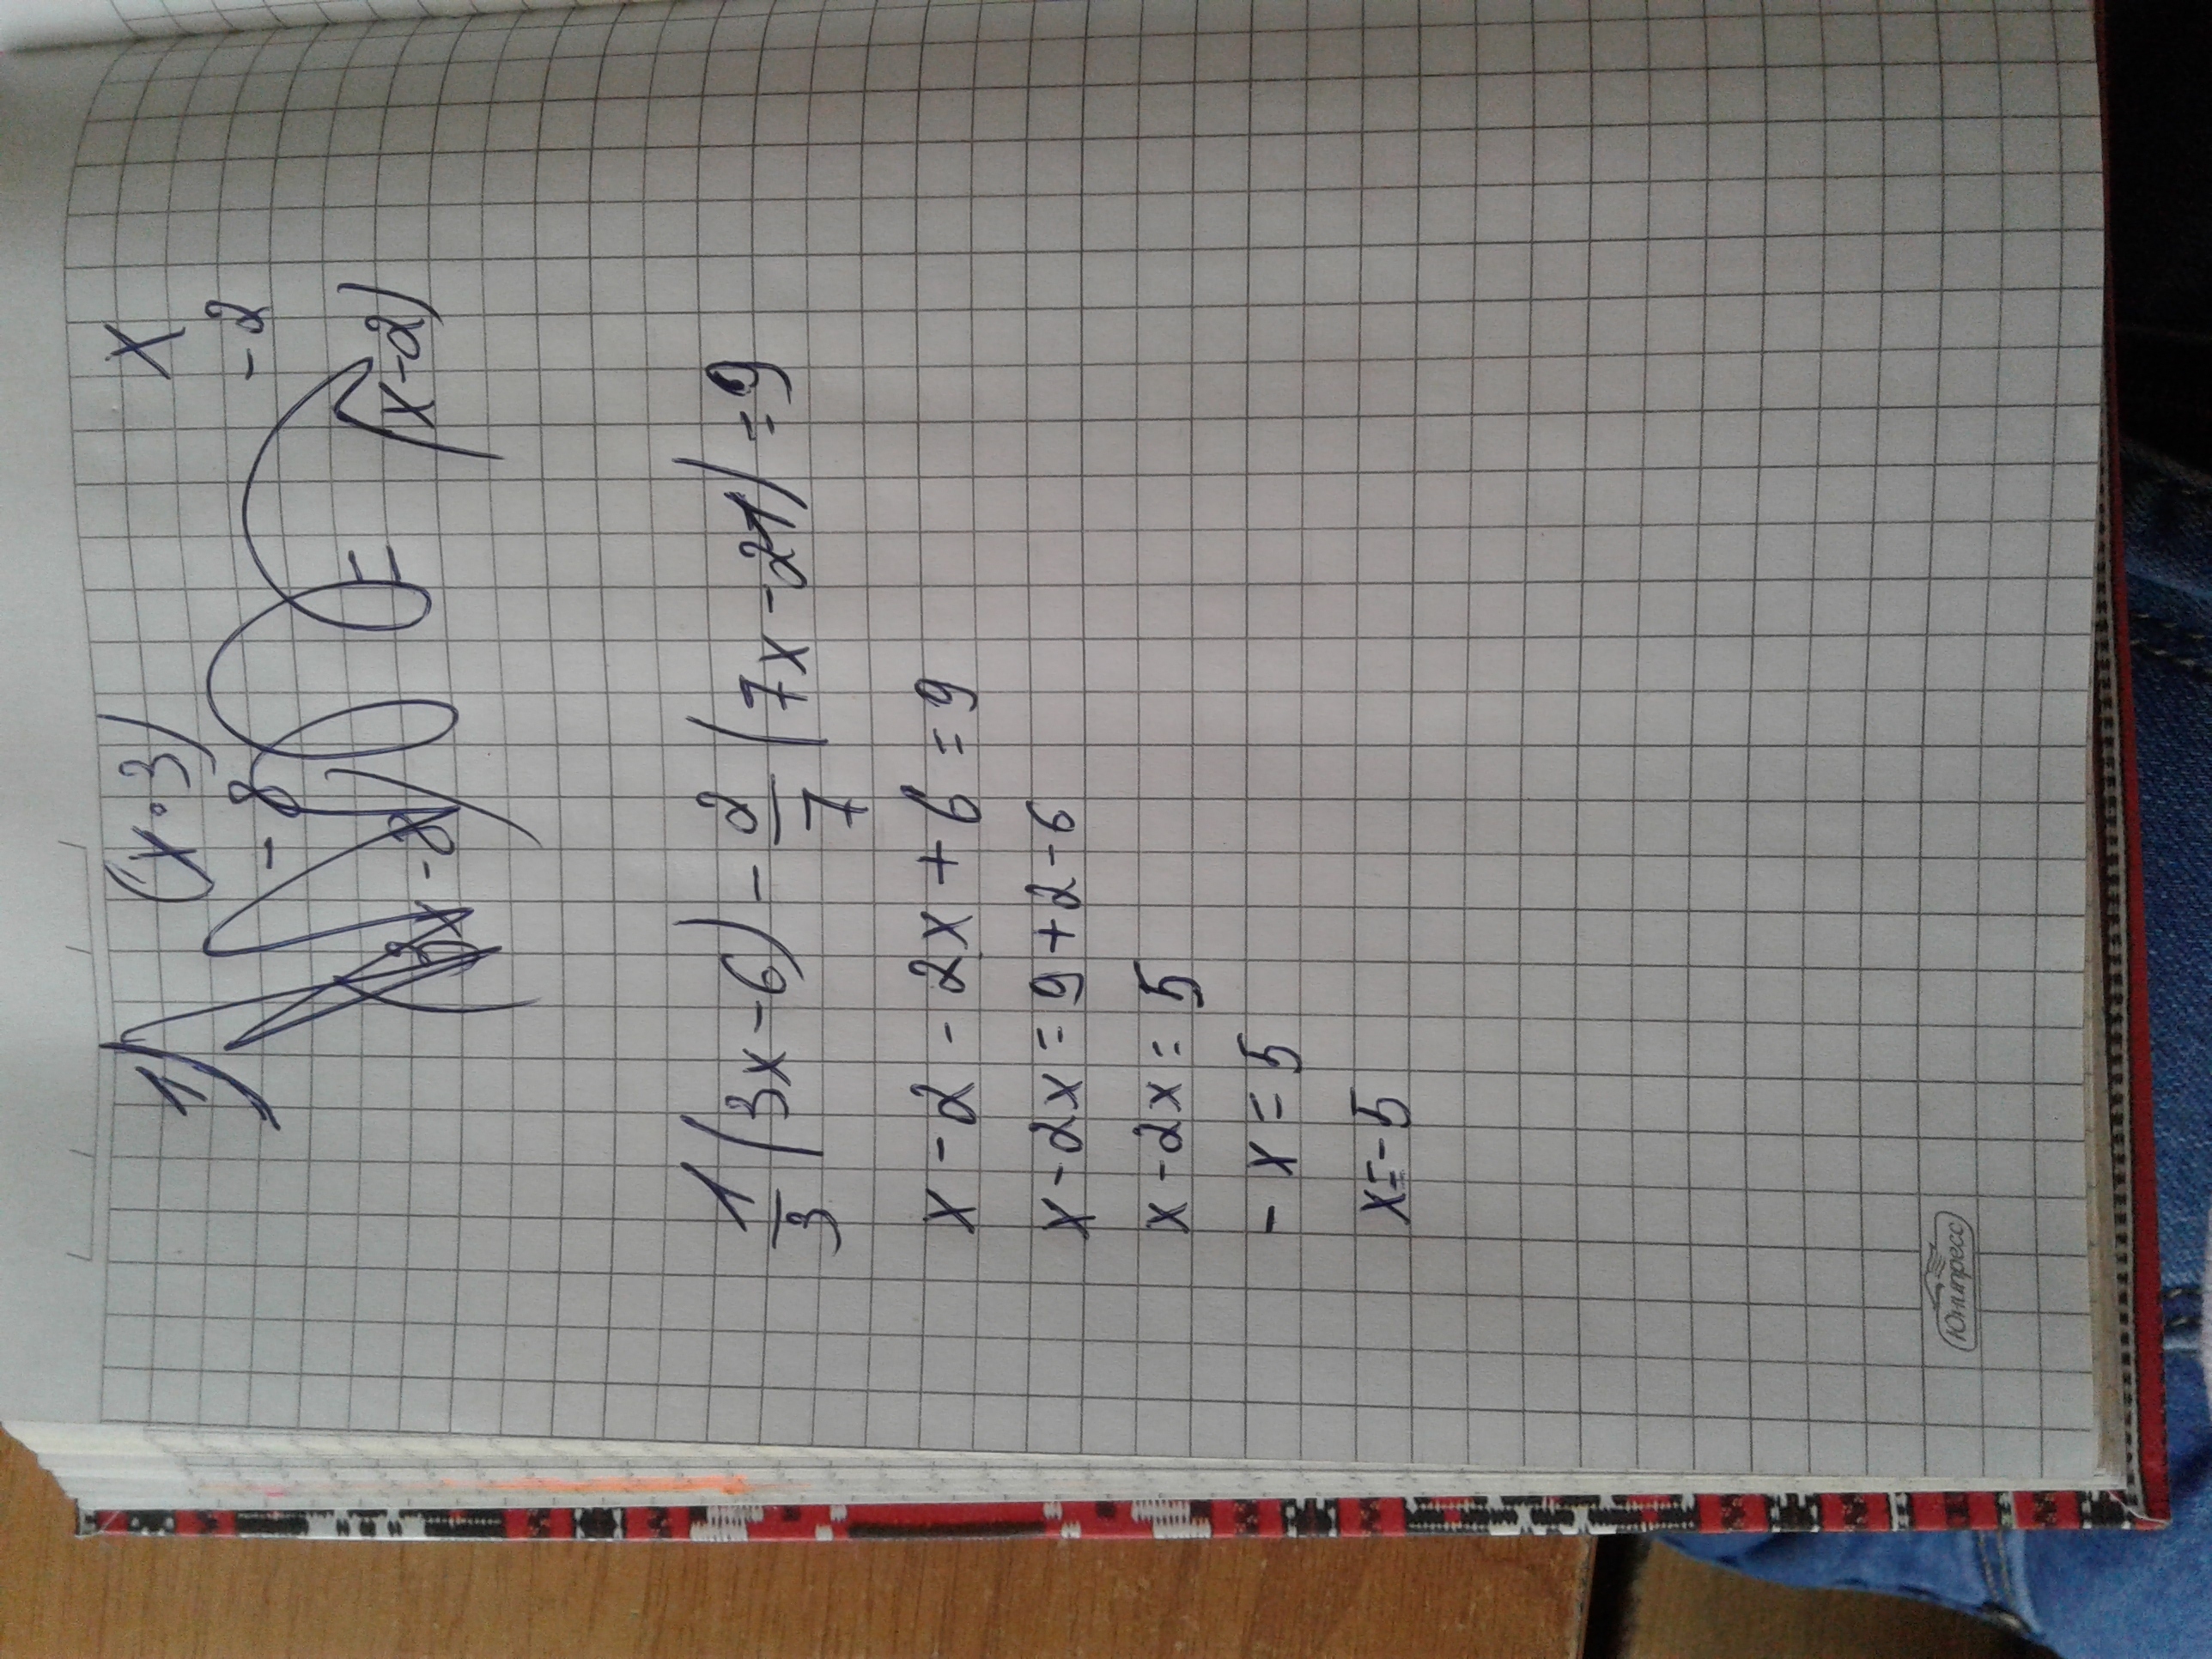 1) (x·3) x
-8 -2
x-8) = (x-2)
1/3 (3x-6) - 2/7 (7x-21) = 9
x-2-2x+6=9
x-2x=9+2-6
x-2x=5
-x=5
x=-5
Юнипресс